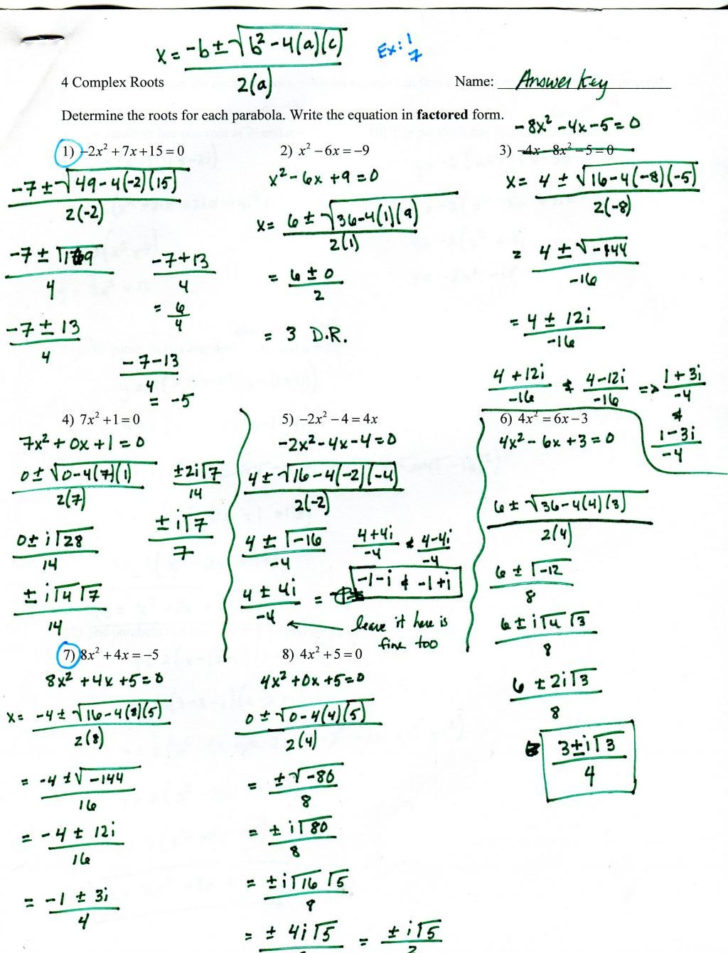 x = -b ± √b² - 4(a)(c) / 2(a)
Ex: 1, 7
4 Complex Roots
Name: Answer Key
Determine the roots for each parabola. Write the equation in factored form.
1) -2x² + 7x + 15 = 0
-7 ± √49 - 4(-2)(15) / 2(-2)
-7 ± √169 / 4
-7 + 13 / 4
= 6/4
-7 ± 13 / 4
-7 - 13 / 4
= -5
2) x² - 6x = -9
x² - 6x + 9 = 0
x = 6 ± √36 - 4(1)(9) / 2(1)
= 6 ± 0 / 2
= 3 D.R.
-8x² - 4x - 5 = 0
3) -4x - 8x² - 5 = 0
x = 4 ± √16 - 4(-8)(-5) / 2(-8)
= 4 ± √-144 / -16
= 4 ± 12i / -16
4 + 12i / -16 & 4 - 12i / -16 => 1 + 3i / -4
&
1 - 3i / -4
4) 7x² + 1 = 0
7x² + 0x + 1 = 0
0 ± √0 - 4(7)(1) / 2(7)
±2i√7 / 14
0 ± i√28 / 14
±i√7 / 7
± i√4 √7 / 14
5) -2x² - 4 = 4x
-2x² - 4x - 4 = 0
4 ± √16 - 4(-2)(-4) / 2(-2)
4 ± √-16 / -4
4 + 4i / -4 & 4 - 4i / -4
4 ± 4i / -4 =
-1 - i & -1 + i
leave it here is
fine too
6) 4x² = 6x - 3
4x² - 6x + 3 = 0
6 ± √36 - 4(4)(3) / 2(4)
6 ± √-12 / 8
6 ± i√4 √3 / 8
6 ± 2i√3 / 8
3 ± i√3 / 4
7) 8x² + 4x = -5
8x² + 4x + 5 = 0
x = -4 ± √16 - 4(8)(5) / 2(8)
= -4 ± √-144 / 16
= -4 ± 12i / 16
= -1 ± 3i / 4
8) 4x² + 5 = 0
4x² + 0x + 5 = 0
0 ± √0 - 4(4)(5) / 2(4)
= ± √-80 / 8
= ± i√80 / 8
= ± i√16 √5 / 8
= ± 4i√5 = ± i√5